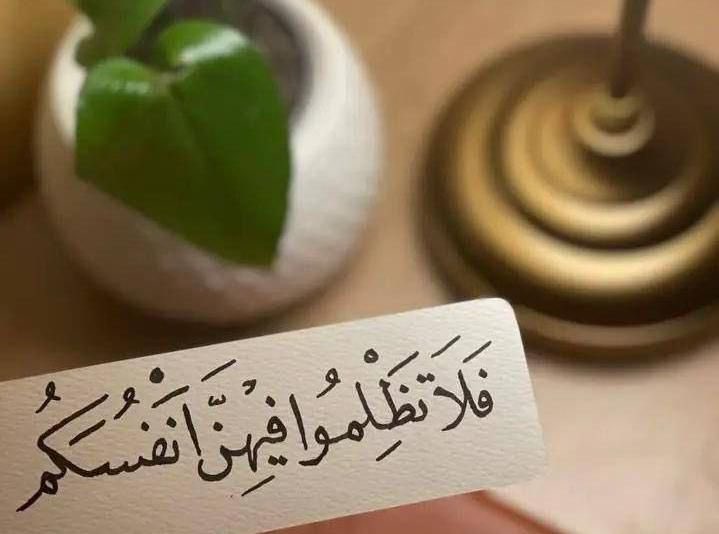 فَلَا تَظْلِمُوا فِيْهِنَّ اَنْفُسَكُمْ